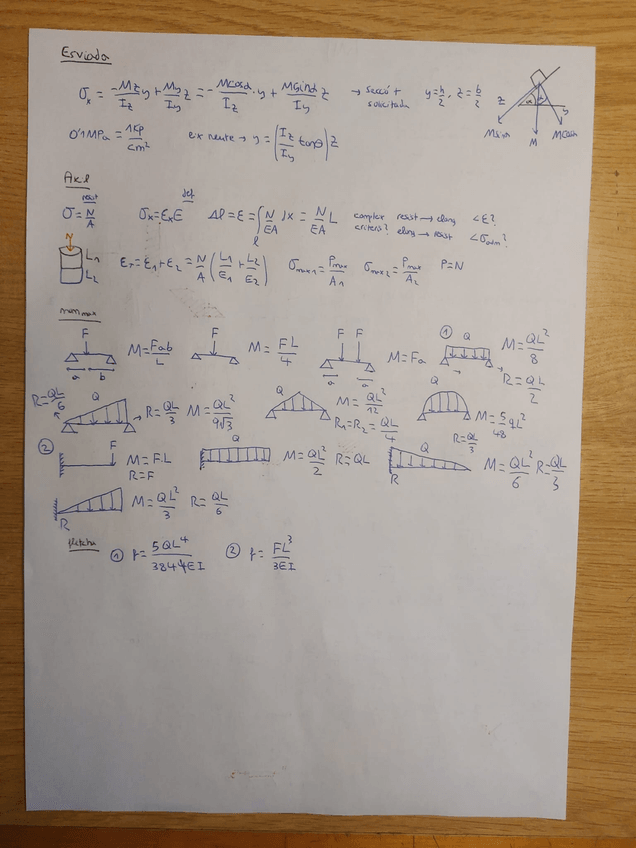 Esviada
σx = -Mz/Iz y + My/Iy z = -Mcosα/Iz · y + Msinα/Iy z → secció + solicitada y = h/2, z = b/2
z α y
Msinα M Mcosα
0'1MPa = 1Kp/cm² ex neutre → y = (Iz/Iy tanθ) z
Axil
resist def
σ = N/A σx = Ex E Δl = ε = ∫l N/EA dx = N/EA L complex resist → elong <ε?
criteris? elong → resist <σadm?
N
L1
L2
εT = ε1 + ε2 = N/A (L1/E1 + L2/E2) σmax1 = Pmax/A1 σmax2 = Pmax/A2 P = N
mom max
F a b M = Fab/L F M = FL/4 F F a a M = Fa ① Q M = QL²/8 R = QL/2
R = QL/6 Q R = QL/3 M = QL²/9√3 Q M = QL²/12 R1 = R2 = QL/4 Q M = 5/48 qL² R = QL/3
② F M = F·L R = F Q M = QL²/2 R = QL Q R M = QL²/6 R = QL/3
R M = QL²/3 R = QL/6
fletxa ① f = 5QL⁴/384EI ② f = FL³/3EI